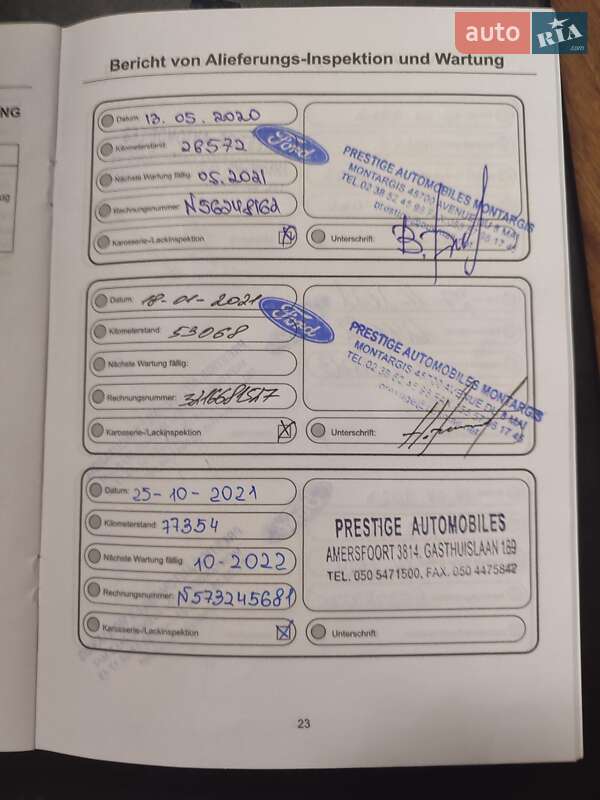 auto RIA .com
NG
Bericht von Alieferungs-Inspektion und Wartung
Datum: 13.05.2020
Kilometerstand: 28572
Nächste Wartung fällig: 05.2021
Rechnungsnummer: N56248162
Karosserie-/Lackinspektion
Ford
PRESTIGE AUTOMOBILES MONTARGIS
MONTARGIS 45700 AVENUE DU 8 MAI
TEL.02 38
Unterschrift:
Datum: 18-01-2021
Kilometerstand: 53068
Nächste Wartung fällig:
Rechnungsnummer:
Karosserie-/Lackinspektion
Ford
PRESTIGE AUTOMOBILES MONTARGIS
MONTARGIS 45700 AVENUE DU 8 MAI
TEL.02 38
Unterschrift:
Datum: 25-10-2021
Kilometerstand: 77354
Nächste Wartung fällig: 10-2022
Rechnungsnummer: N573245681
Karosserie-/Lackinspektion
PRESTIGE AUTOMOBILES
AMERSFOORT 3814, GASTHUISLAAN 169
TEL. 050 5471500, FAX. 050 4475842
Unterschrift:
23